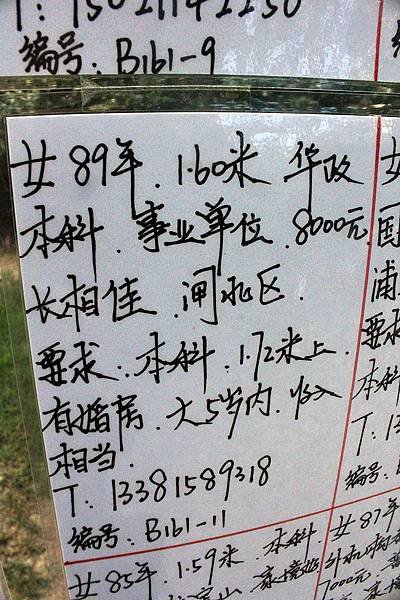 T: 15021142250
编号: B161-9
女 89年. 1.60米 华政
本科. 事业单位. 8000元
长相佳. 闸北区.
要求: 本科. 1.72米上.
有婚房. 大5岁内. 收入
相当.
T: 13381589318
编号: B161-11
女85年. 1.59米. 本科.
女
国
浦
要求
本科
T: 13
编号:
女87年
7000元.